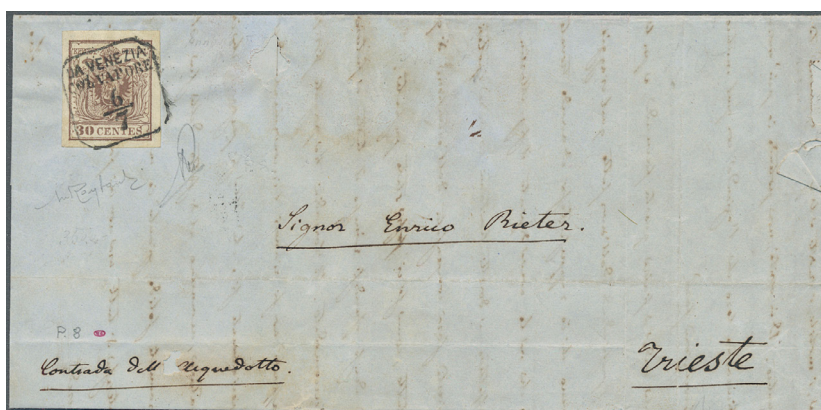 DA VENEZIA
COL VAPORE
6
7
30 CENTES
Signor Enrico Rieter.
P. 8
Contrada dell Acquedotto.
Trieste